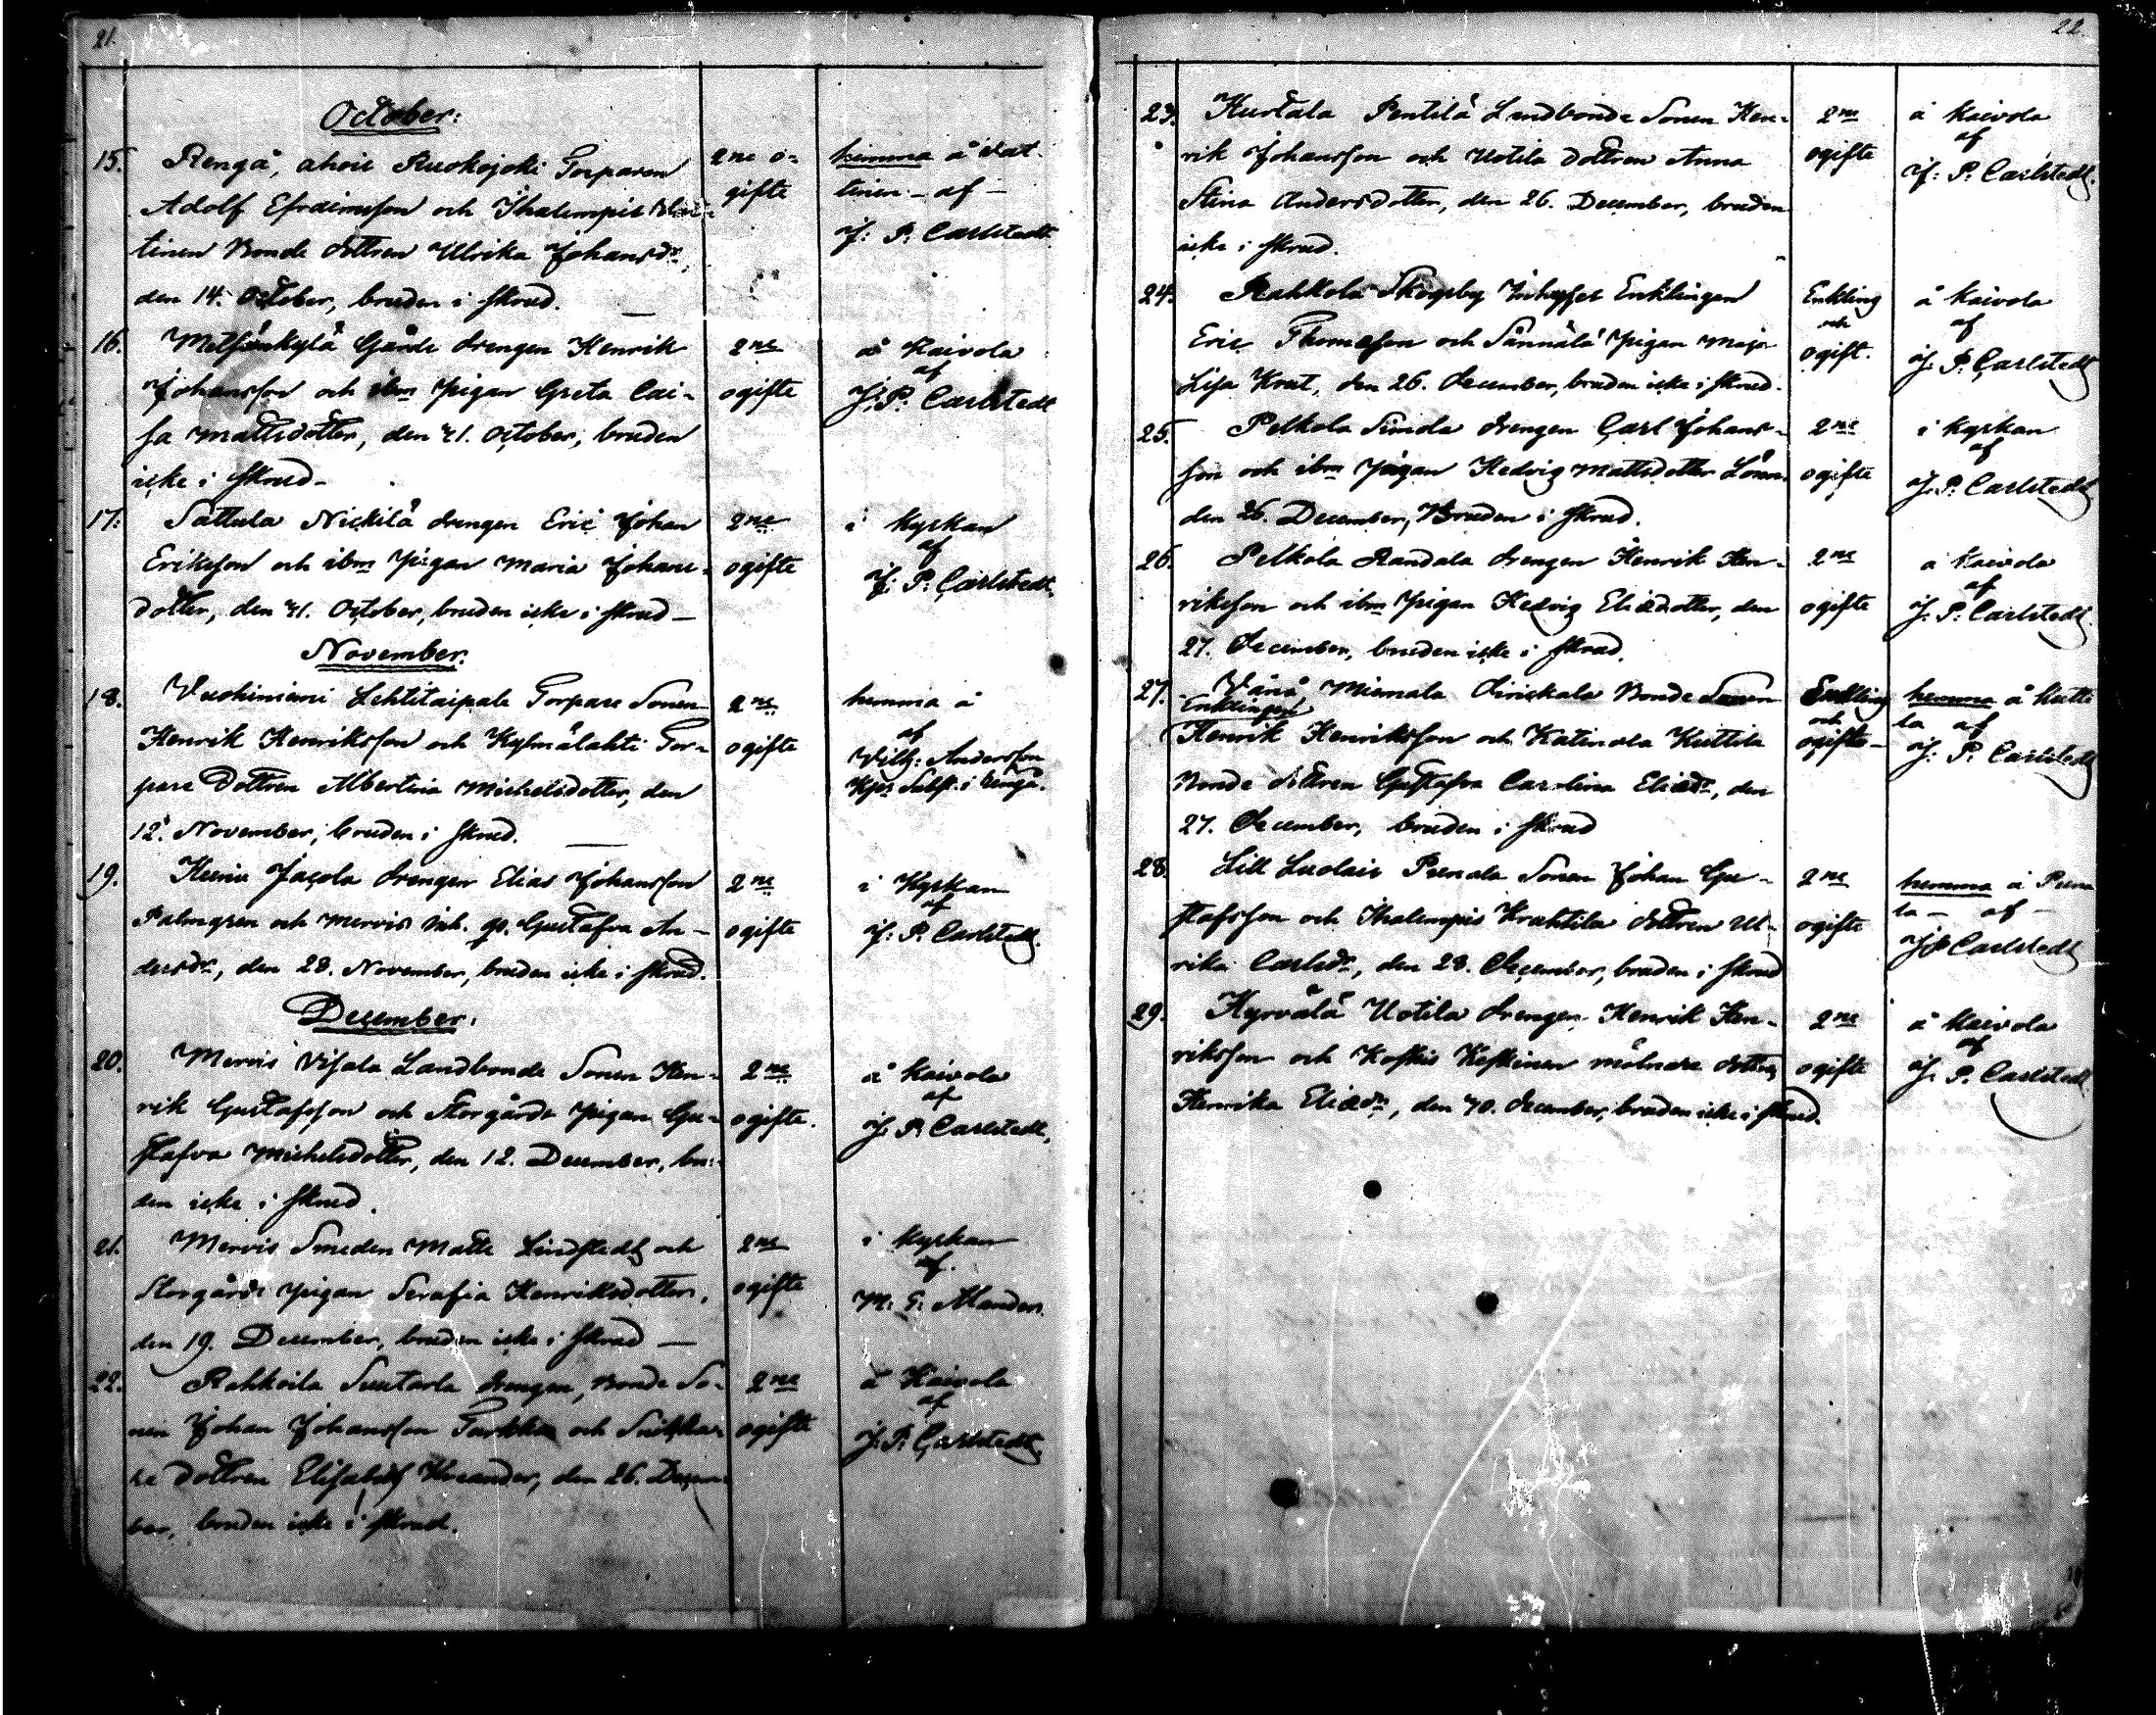 21.
October:
15. Rengå, ahois Ruokojoki Torparen
Adolf Efraimsson och Ihalempis
tinen Bonde dottren Ulrika Johansdr,
den 14. October, bruden i skrud.
2ne o-
gifte
hemma å Vat-
tinen - af -
J: P: Carlstedt
16. Metsänkylä Gårds drengen Henrik
Johansson och ibm pigan Greta Cai-
sa Mattsdotter, den 31. October, bruden
icke i skrud -
2ne
ogifte
å Kaivola
af
J: P: Carlstedt
17. Sattula Nickilä drengen Eric Johan
Eriksson och ibm pigan Maria Johans-
dotter, den 31. October, bruden icke i skrud -
2ne
ogifte
i Kyrkan
af
J: P: Carlstedt
November.
18. Vuohiniemi Lehtitaipale Torpare Sonen
Henrik Henriksson och Kylmälahti Tor-
pare Dottren Albertina Michelsdotter, den
12. November, bruden i skrud.
2ne
ogifte
hemma å
af
Vilh: Andersson
Kpl: Subst. i Rengå.
19. Hunin Jacola drengen Elias Johansson
Palmgren och Mervis inh. p. Gustafva An-
dersdr, den 28. November, bruden icke i skrud.
2ne
ogifte
i Kyrkan
af
J: P: Carlstedt
December:
20. Mervis Visala Landbonde Sonen Hen-
rik Gustafsson och Storgårds pigan Gu-
stafva Michelsdotter, den 12. December, bru-
den icke i skrud.
2ne
ogifte.
å Kaivola
af
J: P: Carlstedt
21. Mervis Smeden Matts Lindstedt och
Storgårds pigan Serafia Henriksdotter,
den 19. December, bruden icke i skrud -
2ne
ogifte
i Kyrkan
af.
M: E: Alander.
22. Rahkoila Suutarla drengen, Bonde So-
nen Johan Johansson Tarkka och
re dottren Elisabeth, den 26. Decem-
ber, bruden icke i skrud.
2ne
ogifte
å Kaivola
af
J: P: Carlstedt
22.
23. Hurtala Pentilä Landbonde Sonen Hen-
rik Johansson och Uotila dottren Anna
Stina Andersdotter, den 26. December, bruden
icke i skrud.
2ne
ogifte
å Kaivola
af
J: P: Carlstedt.
24. Rahkola Skogsby Inhyses Enklingen
Eric Thomasson och Sännälä pigan Maja
Lisa Krat, den 26. December, bruden icke i skrud.
Enkling
och
ogift.
å Kaivola
af
J: P: Carlstedt
25. Pelkola Simola drengen Carl Johans-
son och ibm pigan Hedvig Mattsdotter
den 26. December, Bruden i skrud.
2ne
ogifte
i Kyrkan
af
J: P: Carlstedt
26. Pelkola Randala drengen Henrik Hen-
riksson och ibm pigan Hedvig Eliædotter, den
27. December, bruden icke i skrud.
2ne
ogifte
å Kaivola
af
J: P: Carlstedt
27. Vänä Miemala Bonde Sonen
Enklingen
Henrik Henriksson och Katinala Kuttila
Bonde dottren Gustafva Carolina Eliædr, den
27. December, bruden i skrud
Enkling
och
ogifte -
hemma å Kutti
la af
J: P: Carlstedt
28. Lill Luolais Punala Sonen Johan Gu-
stafsson och Ihalempis Krahtila dottren Ul-
rika Carlsdr, den 28. December, bruden i skrud
2ne
ogifte
hemma å Puna
la - af -
J: P: Carlstedt
29. Hyrvälä Uotila drengen Henrik Hen-
riksson och Koskis Keskinen mölnare dottren
Henrika Eliædr, den 30. december, bruden icke i skrud.
2ne
ogifte
å Kaivola
af
J: P: Carlstedt